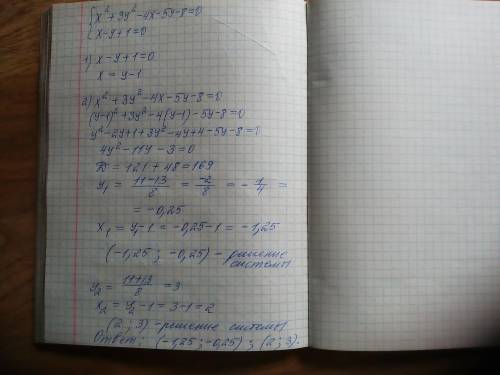 {x² + 3y² - 4x - 5y - 8 = 0
x - y + 1 = 0
1) x - y + 1 = 0
x = y - 1
2) x² + 3y² - 4x - 5y - 8 = 0
(y-1)² + 3y² - 4(y-1) - 5y - 8 = 0
y² - 2y + 1 + 3y² - 4y + 4 - 5y - 8 = 0
4y² - 11y - 3 = 0
D = 121 + 48 = 169
y₁ = (11-13)/8 = -2/8 = -1/4 =
= -0,25
x₁ = y₁ - 1 = -0,25 - 1 = -1,25
(-1,25; -0,25) - решение
системы
y₂ = (11+13)/8 = 3
x₂ = y₂ - 1 = 3 - 1 = 2
(2; 3) - решение системы
Ответ: (-1,25; -0,25); (2; 3).